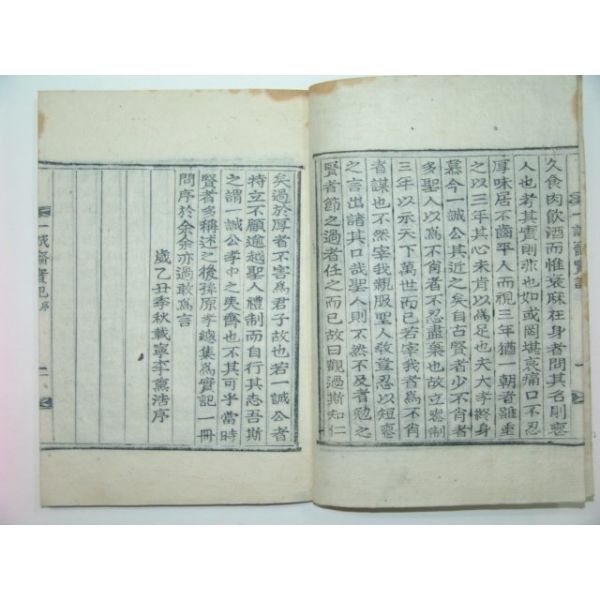 久食肉飮酒而惟衰麻在身者問其名則喪
人也考其實則非也如或罔堪哀痛口不忍
厚味居不齒平人而視三年猶一朝者雖重
之以三年其心未肯以爲足也夫大孝終身
慕今一誠公其近之矣自古賢者少不肖者
多聖人以爲不肖者不忍盡棄也故立喪制
三年以示天下萬世而已若宰我者爲不肖
者謀也不然宰我親服聖人敎豈忍以短喪
之言出諸其口哉聖人則不然不及者勉之
賢者節之過者任之而已故曰觀過斯知仁
矣過於厚者不害爲君子故也若一誠公者
特立不顧逾越聖人禮制而自行其志吾斯
之謂一誠公孝中之夷齊也不其可乎當時
賢者多稱述之後孫原孝總集爲實記一冊
問序於余余亦過敢爲言
歲乙丑季秋載寧李
浩序
一誠齋實記 序
二